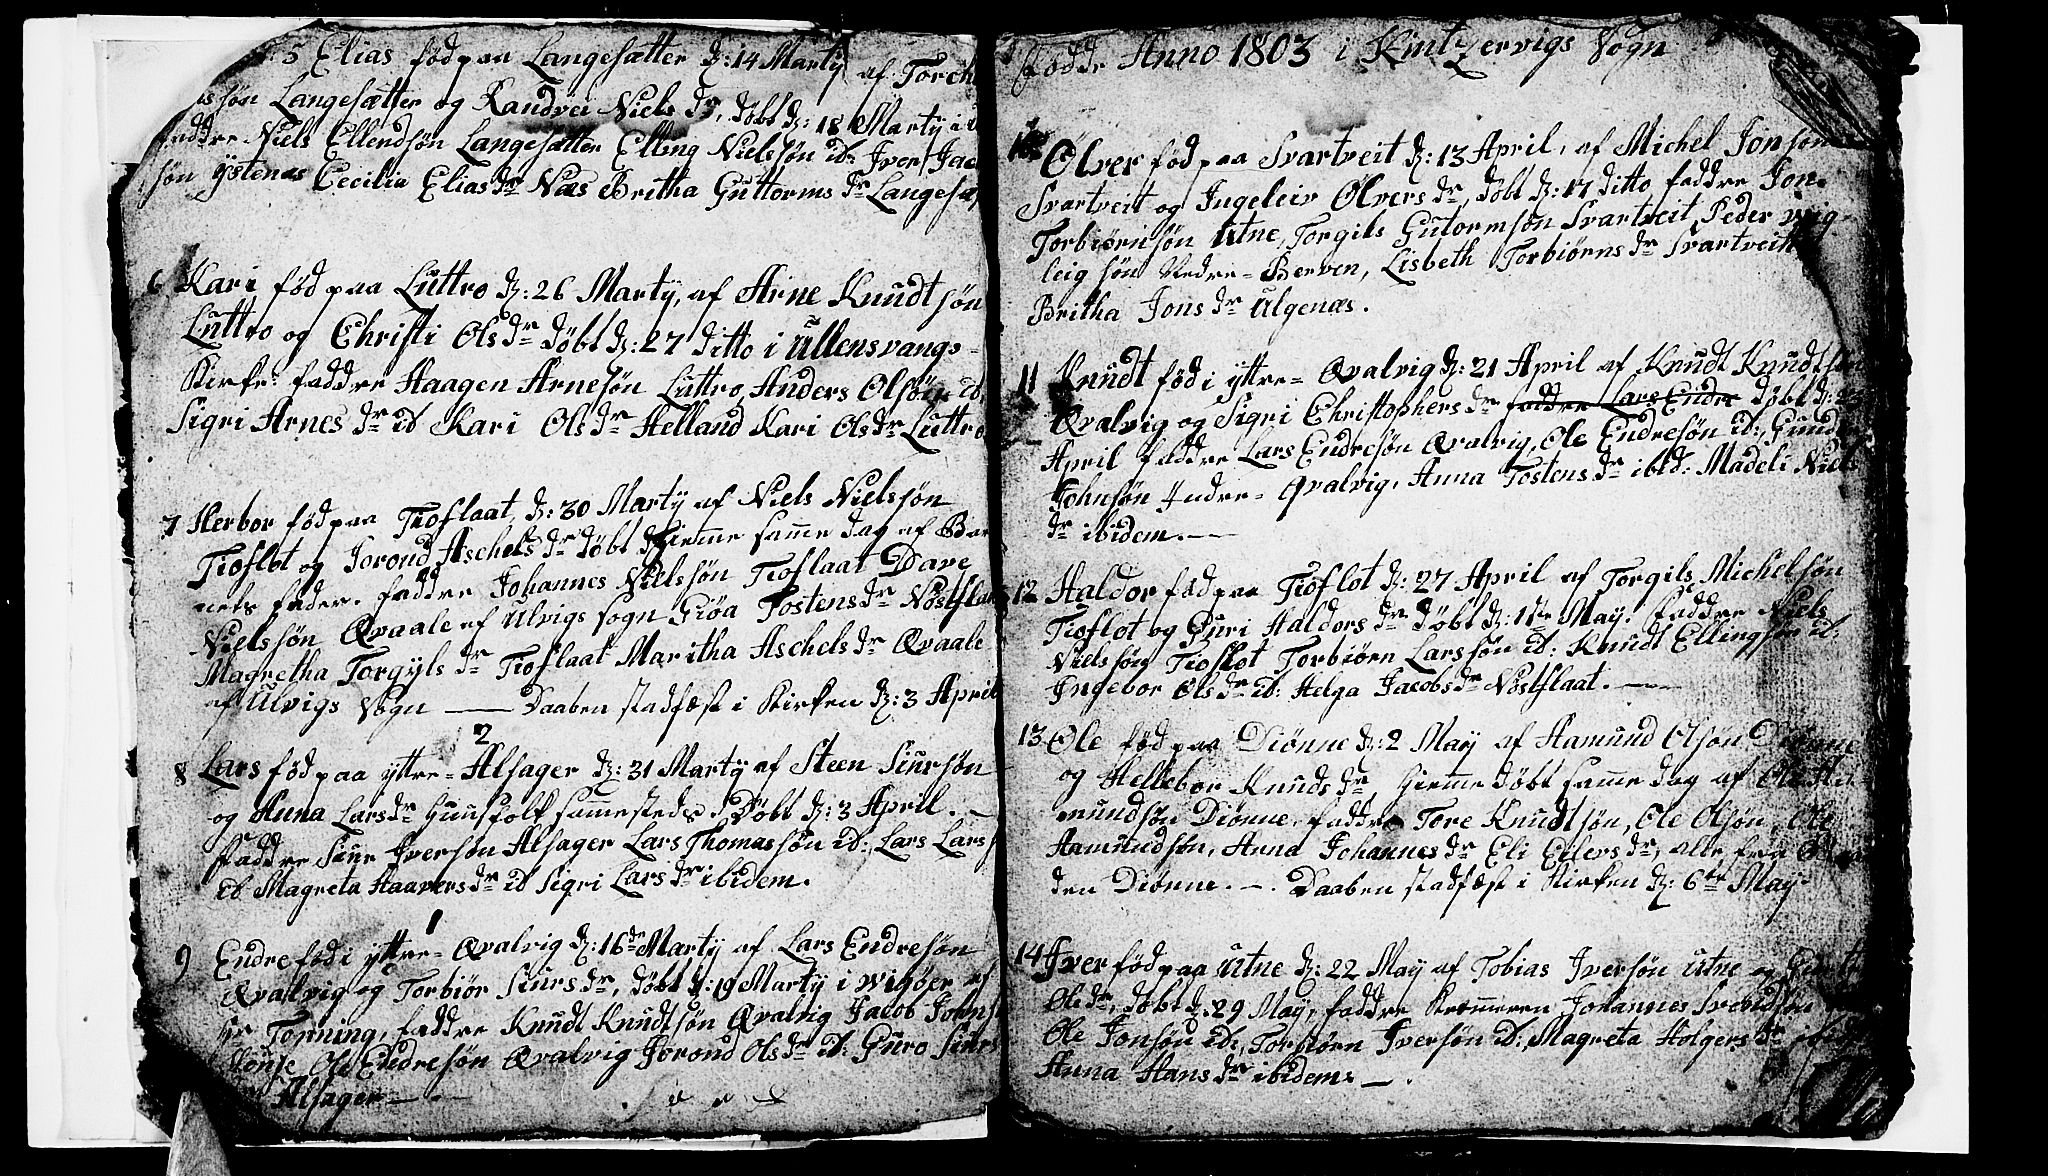 5 Elias föd paa Langesætter d: 14 Marty af
søn Langesætter og Randvei Niels dr, döbt d: 18 Marty i
faddre Niels Ellendsøn Langesætter Elling Nielssøn id: Iver
søn ystenæs Cecilia Elias dr Næs Britha Guttorms dr
6 Kari föd paa Luttro d: 26 Marty, af Arne Knudtsøn
Luttro og Christi Ols dr döbt d: 27 ditto i Ullensvangs-
Kirke: faddre Haagen Arnesøn Luttro, Anders Olsøn id.
Sigri Arnes dr id Kari Ols dr Helland Kari Ols dr Luttro
7 Herbor föd paa Tioflaat, d: 30 Marty af Niels Nielssøn
Tioflot og Jorond Aschels dr döbt hiemme samme dag af Bar
nets fader. faddre Johannes Nielssøn Tioflaat Dave
Nielssøn Qvaale af Ulvigs sogn Giöa Tostens dr
Magretha Torgyls dr Tioflaat Maritha Aschels dr Qvaale
af Ulvigs Sogn — Daaben stadfæst i Kirken d: 3 April
2
8 Lars föd paa yttre-Alsager d: 31 Marty af Steen Siursøn
og Anna Lars dr Huusfolk sammesteds Döbt d: 3 April. -
faddre Siur Iversøn Alsager Lars Thomassøn id:, Lars Lars
id Magreta Haavers dr id Sigri Lars dr ibidem.
1
9 Endre föd i yttre-Qvalvig d: 16de Marty af Lars Endresøn
Qvalvig og Torbiör Siurs dr, döbt d: 19 Marty i Wigöer af
Hr Tonning, faddre Knudt Knudtsøn Qvalvig Jacob
Ole Endresøn Qvalvig Jorond Ols dr id: Guro Siurs
Alsager —
Födde Anno 1803 i Kintzervigs Sogn
10 Ölver föd paa Svartveit d: 13 April, af Michel Jonsøn
Svartveit og Ingeleiv Ölvers dr, döbt d: 17 ditto faddre Jon
Torbiörnsøn Utne, Torgils Gutormsøn Svartveit, Peder wig-
leigsøn Nedre-Berven, Lisbeth Torbiörns dr Svartveit
Britha Jons dr Ulgenæs.
11 Knudt föd i yttre-Qvalvig d: 21 April af Knudt Knudtsøn
Qvalvig og Sigri Christophers dr faddre Lars Endre döbt d:
April faddre Lars Endresøn Qvalvig, Ole Endresøn id:,
Johnsøn Indre-Qvalvig, Anna Tostens dr ibid: Madeli Niels
dr ibidem. —
12 Haldor föd paa Tioflot d: 27 April af Torgils Michelsøn
Tioflot og Guri Haldors dr döbt d: 1ste May. faddre Niels
Nielssøn Tioflot Torbiörn Larssøn id: Knudt Ellingsøn id:
Ingebor Ols dr id: Helga Jacobs dr Nöstflaat. —
13 Ole föd paa Diönne d: 2 May af Aamund Olsøn Diönne
og Hellebor Knuds dr, Hiemme döbt samme dag af Ole Aa-
mundsøn Diönne, faddre Tore Knudtsøn, Ole Olsøn, Ole
Aamundsøn, Anna Johannes dr Eli Eilers dr, alle fra
den Diönne. —. Daaben stadfæst i Kirken d: 6te May
14 Iver föd paa Utne d: 22 May af Tobias Iversøn Utne og
Ole dr, döbt d: 29 May, faddre Johannes Svendsøn
Ole Jonsøn id:, Torbiörn Iversøn id:, Magreta Holgers dr
Anna Hans dr ibidem. —.